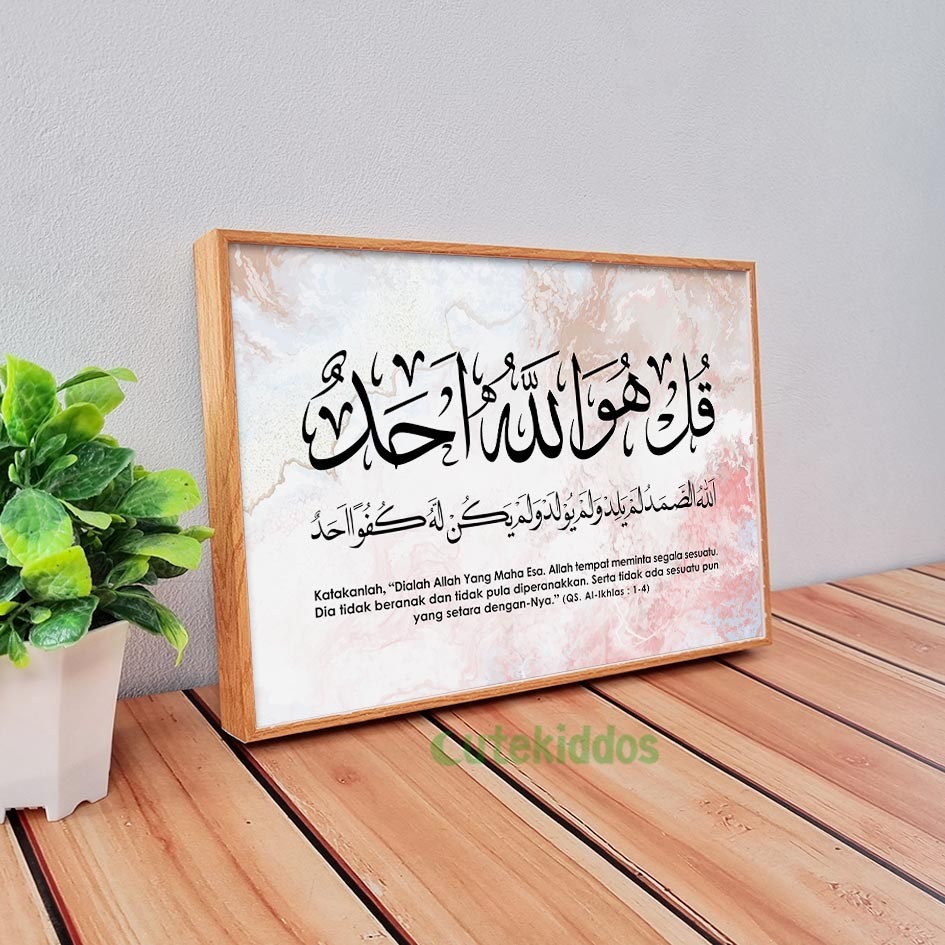 قُلْ هُوَ اللّٰهُ اَحَدٌ
اَللّٰهُ الصَّمَدُ لَمْ يَلِدْ وَلَمْ يُوْلَدْ وَلَمْ يَكُنْ لَّهٗ كُفُوًا اَحَدٌ
Katakanlah, “Dialah Allah Yang Maha Esa. Allah tempat meminta segala sesuatu.
Dia tidak beranak dan tidak pula diperanakkan. Serta tidak ada sesuatu pun
yang setara dengan-Nya.” (QS. Al-Ikhlas : 1-4)
Cutekiddos